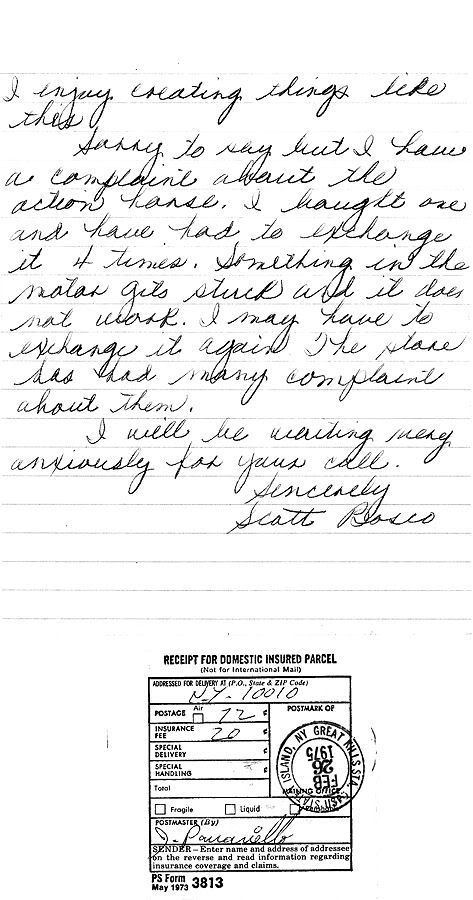 I enjoy creating things like
this
Sorry to say but I have
a complaint about the
action horse. I bought one
and have had to exchange
it 4 times. Something in the
motor gits stuck and it does
not work. I may have to
exchange it again The store
has had many complaint
about them.
I will be waiting very
anxiously for your call.
Sincerely
Scott Bosco
RECEIPT FOR DOMESTIC INSURED PARCEL
(Not for International Mail)
ADDRESSED FOR DELIVERY AT (P.O., State & ZIP Code)
N.Y. 10010
POSTAGE Air 72 ¢
POSTMARK OF
INSURANCE FEE 20 ¢
SPECIAL DELIVERY ¢
SPECIAL HANDLING ¢
Total
ISLAND, NY GREAT KILLS STA.
FEB
26
1975
MAILING OFFICE
Fragile Liquid
POSTMASTER (By)
SENDER – Enter name and address of addressee
on the reverse and read information regarding
insurance coverage and claims.
PS Form
May 1973 3813